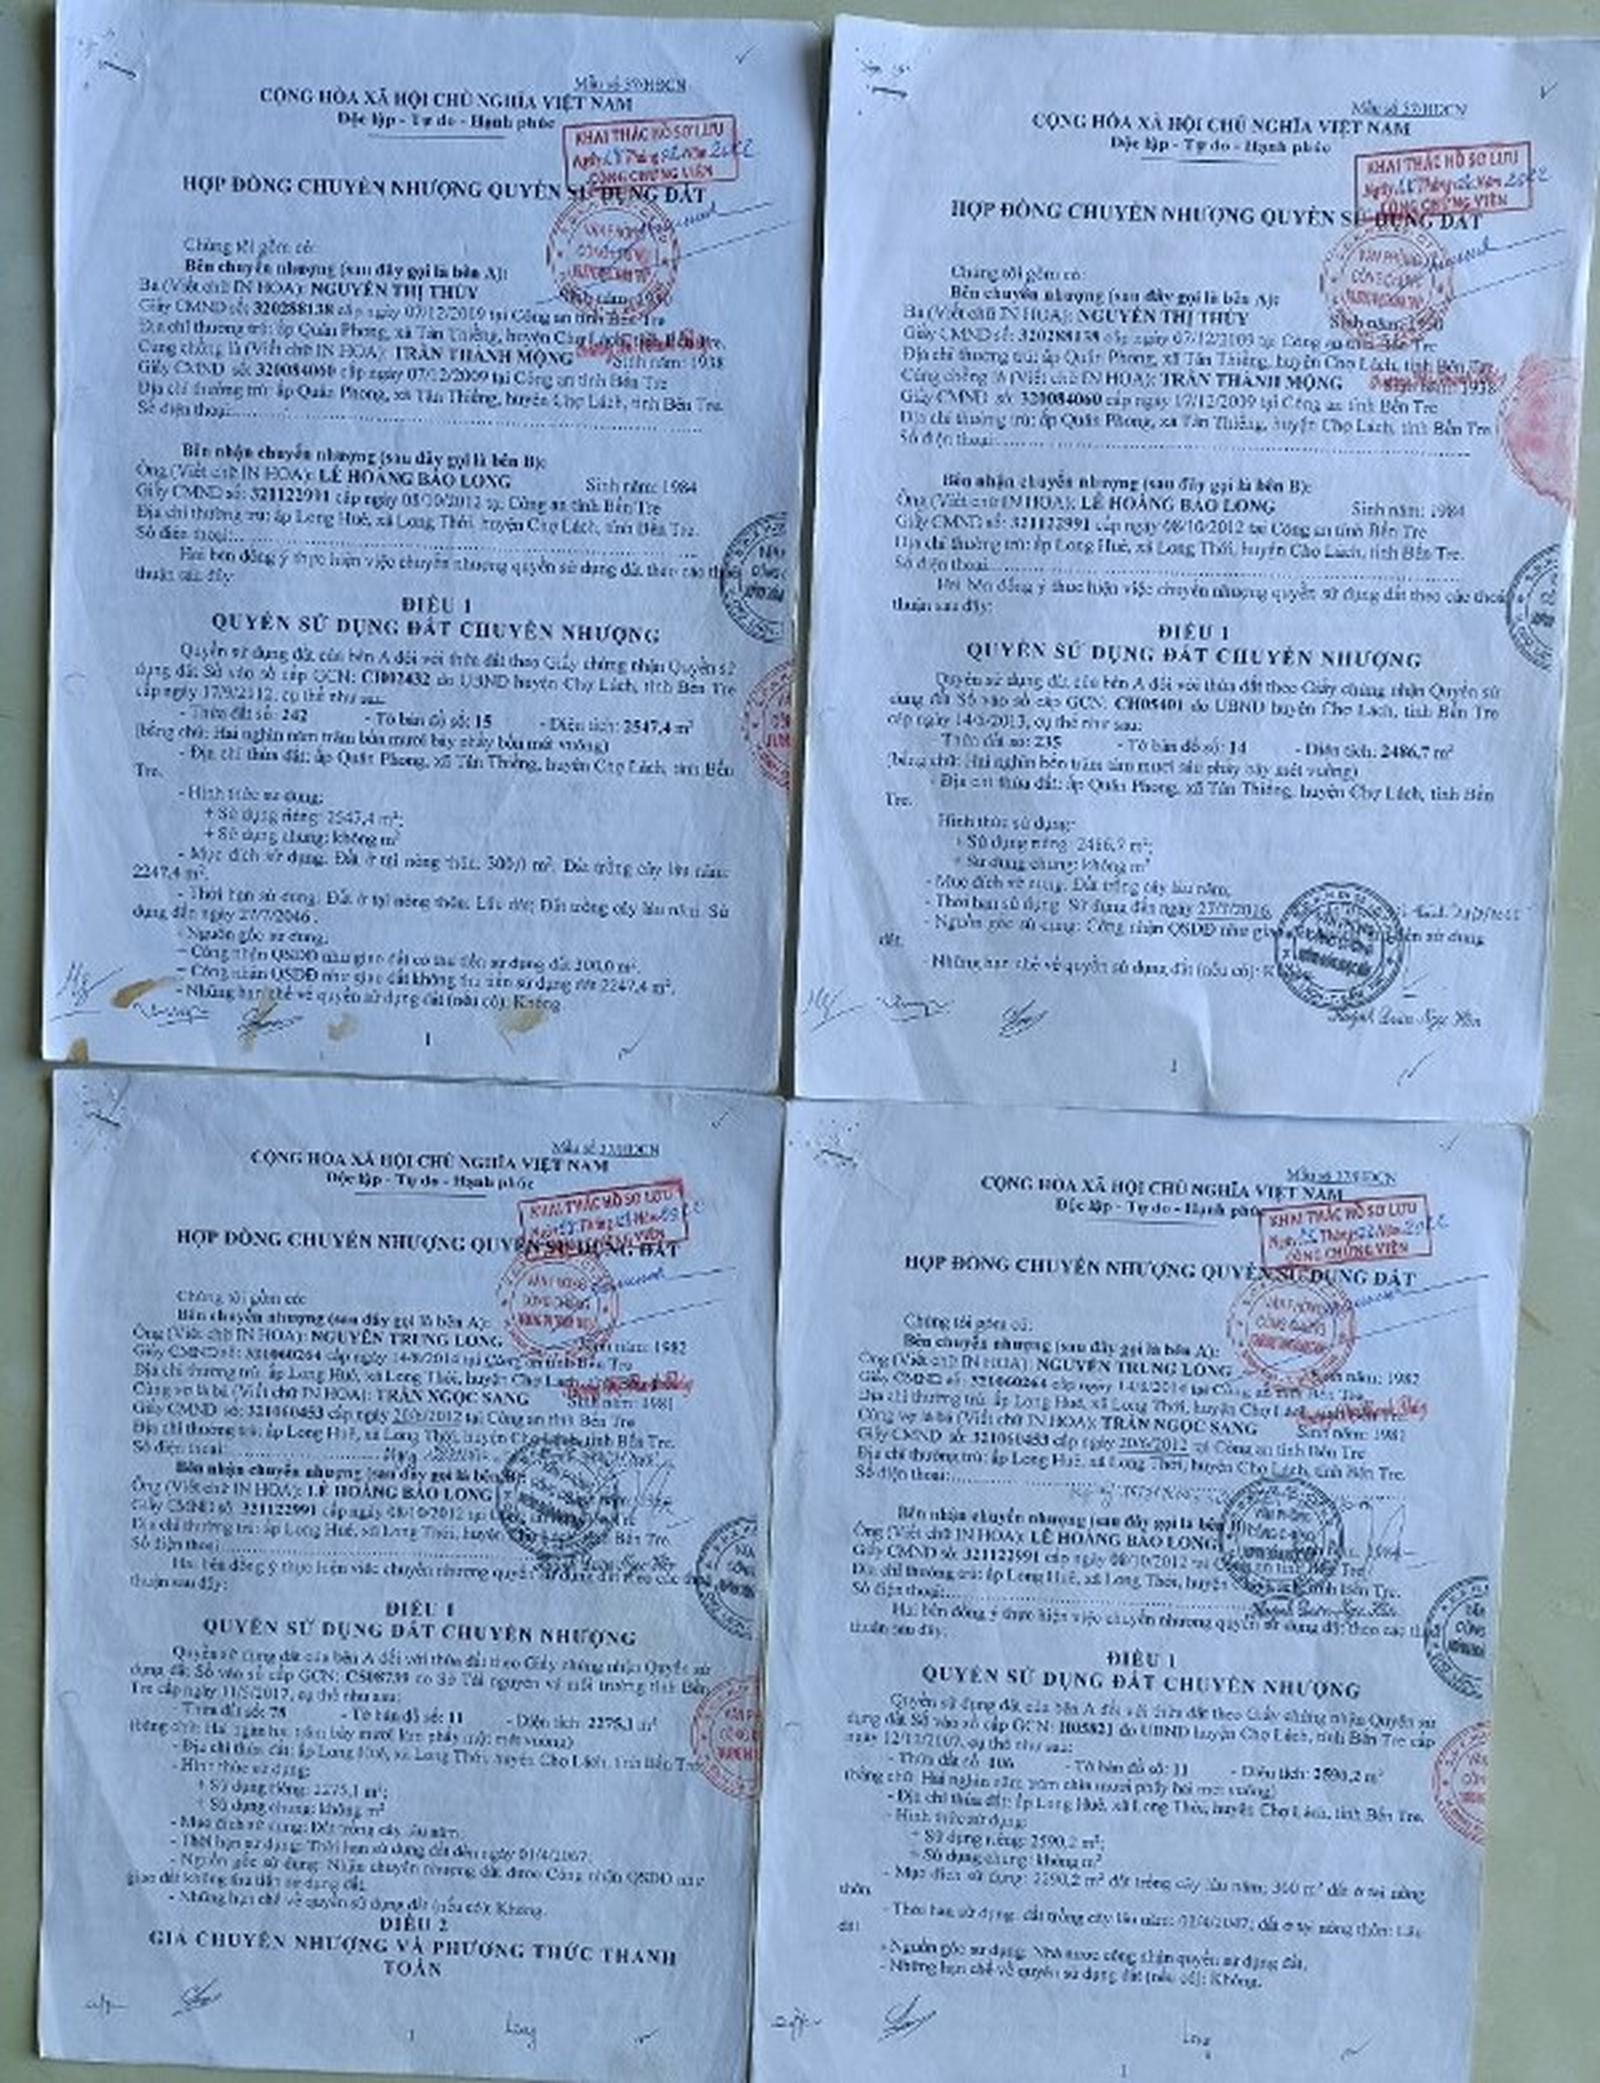 Mẫu số 37/HĐCN
CỘNG HÒA XÃ HỘI CHỦ NGHĨA VIỆT NAM
Độc lập - Tự do - Hạnh phúc
KHAI THÁC HỒ SƠ LƯU
CÔNG CHỨNG VIÊN
HỢP ĐỒNG CHUYỂN NHƯỢNG QUYỀN SỬ DỤNG ĐẤT
Chúng tôi gồm có:
Bên chuyển nhượng (sau đây gọi là bên A):
Bà (Viết chữ IN HOA): NGUYỄN THỊ THỦY
Giấy CMND số: 320288138 cấp ngày 07/12/2009 tại Công an tỉnh Bến Tre
Địa chỉ thường trú: ấp Quân Phong, xã Tân Thiềng, huyện Chợ Lách, tỉnh Bến Tre.
Cùng chồng là (Viết chữ IN HOA): TRẦN THÀNH MỘNG Sinh năm: 1938
Giấy CMND số: 320084060 cấp ngày 07/12/2009 tại Công an tỉnh Bến Tre
Địa chỉ thường trú: ấp Quân Phong, xã Tân Thiềng, huyện Chợ Lách, tỉnh Bến Tre.
Số điện thoại:
Bên nhận chuyển nhượng (sau đây gọi là bên B):
Ông (Viết chữ IN HOA): LÊ HOÀNG BẢO LONG Sinh năm: 1984
Giấy CMND số: 321122991 cấp ngày 08/10/2012 tại Công an tỉnh Bến Tre
Địa chỉ thường trú: ấp Long Huê, xã Long Thới, huyện Chợ Lách, tỉnh Bến Tre.
Số điện thoại:
Hai bên đồng ý thực hiện việc chuyển nhượng quyền sử dụng đất theo các thỏa
thuận sau đây:
ĐIỀU 1
QUYỀN SỬ DỤNG ĐẤT CHUYỂN NHƯỢNG
Quyền sử dụng đất của bên A đối với thửa đất theo Giấy chứng nhận Quyền sử
dụng đất Số vào sổ cấp GCN: CH02432 do UBND huyện Chợ Lách, tỉnh Bến Tre
cấp ngày 17/9/2012, cụ thể như sau:
- Thửa đất số: 242 - Tờ bản đồ số: 15 - Diện tích: 2547,4 m²
(bằng chữ: Hai nghìn năm trăm bốn mươi bảy phẩy bốn mét vuông)
- Địa chỉ thửa đất: ấp Quân Phong, xã Tân Thiềng, huyện Chợ Lách, tỉnh Bến
Tre.
- Hình thức sử dụng:
+ Sử dụng riêng: 2547,4 m²;
+ Sử dụng chung: không m²
- Mục đích sử dụng: Đất ở tại nông thôn: 300,0 m², Đất trồng cây lâu năm:
2247,4 m².
- Thời hạn sử dụng: Đất ở tại nông thôn: Lâu dài; Đất trồng cây lâu năm: Sử
dụng đến ngày 27/7/2046.
- Nguồn gốc sử dụng:
– Công nhận QSDĐ như giao đất có thu tiền sử dụng đất 300,0 m².
– Công nhận QSDĐ như giao đất không thu tiền sử dụng đất 2247,4 m².
- Những hạn chế về quyền sử dụng đất (nếu có): Không
1
Mẫu số 37/HĐCN
CỘNG HÒA XÃ HỘI CHỦ NGHĨA VIỆT NAM
Độc lập - Tự do - Hạnh phúc
KHAI THÁC HỒ SƠ LƯU
CÔNG CHỨNG VIÊN
HỢP ĐỒNG CHUYỂN NHƯỢNG QUYỀN SỬ DỤNG ĐẤT
Chúng tôi gồm có:
Bên chuyển nhượng (sau đây gọi là bên A):
Bà (Viết chữ IN HOA): NGUYỄN THỊ THỦY
Giấy CMND số: 320288138 cấp ngày 07/12/2009 tại Công an tỉnh Bến Tre
Địa chỉ thường trú: ấp Quân Phong, xã Tân Thiềng, huyện Chợ Lách, tỉnh Bến Tre.
Cùng chồng là (Viết chữ IN HOA): TRẦN THÀNH MỘNG 1938
Giấy CMND số: 320084060 cấp ngày 17/12/2009 tại Công an tỉnh Bến Tre
Địa chỉ thường trú: ấp Quân Phong, xã Tân Thiềng, huyện Chợ Lách, tỉnh Bến Tre
Số điện thoại:
Bên nhận chuyển nhượng (sau đây gọi là bên B):
Ông (Viết chữ IN HOA): LÊ HOÀNG BẢO LONG Sinh năm: 1984
Giấy CMND số: 321122991 cấp ngày 08/10/2012 tại Công an tỉnh Bến Tre
Địa chỉ thường trú: ấp Long Huê, xã Long Thới, huyện Chợ Lách, tỉnh Bến Tre.
Số điện thoại
Hai bên đồng ý thực hiện việc chuyển nhượng quyền sử dụng đất theo các thỏa
thuận sau đây:
ĐIỀU 1
QUYỀN SỬ DỤNG ĐẤT CHUYỂN NHƯỢNG
Quyền sử dụng đất của bên A đối với thửa đất theo Giấy chứng nhận Quyền sử
dụng đất Số vào sổ cấp GCN: CH05401 do UBND huyện Chợ Lách, tỉnh Bến Tre
cấp ngày 14/6/2013, cụ thể như sau:
- Thửa đất số: 235 - Tờ bản đồ số: 14 - Diện tích: 2486,7 m²
(bằng chữ: Hai nghìn bốn trăm tám mươi sáu phẩy bảy mét vuông)
- Địa chỉ thửa đất: ấp Quân Phong, xã Tân Thiềng, huyện Chợ Lách, tỉnh Bến
Tre.
Hình thức sử dụng:
+ Sử dụng riêng: 2486,7 m²;
+ Sử dụng chung: không m²
- Mục đích sử dụng: Đất trồng cây lâu năm.
- Thời hạn sử dụng: Sử dụng đến ngày
- Nguồn gốc sử dụng: Công nhận QSDĐ như tiền sử dụng
đất.
- Những hạn chế về quyền sử dụng đất (nếu có):
Huỳnh Trần Ngọc Hân
1
CỘNG HÒA XÃ HỘI CHỦ NGHĨA VIỆT NAM
Độc lập - Tự do - Hạnh phúc
KHAI THÁC HỒ SƠ LƯU
CÔNG CHỨNG VIÊN
HỢP ĐỒNG CHUYỂN NHƯỢNG QUYỀN SỬ DỤNG ĐẤT
Chúng tôi gồm có
Bên chuyển nhượng (sau đây gọi là bên A):
Ông (Viết chữ IN HOA): NGUYỄN TRUNG LONG Sinh năm: 1982
Giấy CMND số: 321060264 cấp ngày 14/8/2014 tại Công an tỉnh Bến Tre
Địa chỉ thường trú: ấp Long Huê, xã Long Thới, huyện Chợ Lách, tỉnh Bến Tre.
Cùng vợ là bà (Viết chữ IN HOA): TRẦN NGỌC SANG Sinh năm: 1981
Giấy CMND số: 321060453 cấp ngày 20/6/2012 tại Công an tỉnh Bến Tre
Địa chỉ thường trú: ấp Long Huê, xã Long Thới, huyện Chợ Lách, tỉnh Bến Tre.
Số điện thoại:
Bên nhận chuyển nhượng (sau đây gọi là bên B):
Ông (Viết chữ IN HOA): LÊ HOÀNG BẢO LONG
Giấy CMND số: 321122991 cấp ngày 08/10/2012 tại
Địa chỉ thường trú: ấp Long Huê, xã Long Thới, huyện Bến Tre.
Số điện thoại
Hai bên đồng ý thực hiện việc chuyển nhượng quyền sử dụng đất theo các thỏa
thuận sau đây:
ĐIỀU 1
QUYỀN SỬ DỤNG ĐẤT CHUYỂN NHƯỢNG
Quyền sử dụng đất của bên A đối với thửa đất theo Giấy chứng nhận Quyền sử
dụng đất Số vào sổ cấp GCN: CS08739 do Sở Tài nguyên và môi trường tỉnh Bến
Tre cấp ngày 11/5/2017, cụ thể như sau:
- Thửa đất số: 78 - Tờ bản đồ số: 11 - Diện tích: 2275,1 m²
(bằng chữ: Hai ngàn hai trăm bảy mươi lăm phẩy một mét vuông)
- Địa chỉ thửa đất: ấp Long Huê, xã Long Thới, huyện Chợ Lách, tỉnh Bến Tre.
- Hình thức sử dụng:
+ Sử dụng riêng: 2275,1 m²;
+ Sử dụng chung: không m²
- Mục đích sử dụng: Đất trồng cây lâu năm.
- Thời hạn sử dụng: Thời hạn sử dụng đất đến ngày 01/4/2067;
- Nguồn gốc sử dụng: Nhận chuyển nhượng đất được Công nhận QSDĐ như
giao đất không thu tiền sử dụng đất.
- Những hạn chế về quyền sử dụng đất (nếu có): Không.
ĐIỀU 2
GIÁ CHUYỂN NHƯỢNG VÀ PHƯƠNG THỨC THANH
TOÁN
1
Long
CỘNG HÒA XÃ HỘI CHỦ NGHĨA VIỆT NAM
Độc lập - Tự do - Hạnh phúc
KHAI THÁC HỒ SƠ LƯU
CÔNG CHỨNG VIÊN
HỢP ĐỒNG CHUYỂN NHƯỢNG QUYỀN SỬ DỤNG ĐẤT
Chúng tôi gồm có:
Bên chuyển nhượng (sau đây gọi là bên A):
Ông (Viết chữ IN HOA): NGUYỄN TRUNG LONG Sinh năm: 1982
Giấy CMND số: 321060264 cấp ngày 14/8/2014 tại Công an tỉnh Bến Tre
Địa chỉ thường trú: ấp Long Huê, xã Long Thới, huyện Chợ Lách, tỉnh Bến Tre.
Cùng vợ là bà (Viết chữ IN HOA): TRẦN NGỌC SANG Sinh năm: 1981
Giấy CMND số: 321060453 cấp ngày 20/6/2012 tại Công an tỉnh Bến Tre
Địa chỉ thường trú: ấp Long Huê, xã Long Thới, huyện Chợ Lách, tỉnh Bến Tre.
Số điện thoại:
Bên nhận chuyển nhượng (sau đây gọi là bên B):
Ông (Viết chữ IN HOA): LÊ HOÀNG BẢO LONG
Giấy CMND số: 321122991 cấp ngày 08/10/2012 tại Công an tỉnh Bến Tre
Địa chỉ thường trú: ấp Long Huê, xã Long Thới, huyện tỉnh Bến Tre.
Số điện thoại:
Huỳnh Trần Ngọc Hân
Hai bên đồng ý thực hiện việc chuyển nhượng quyền sử dụng đất theo các thỏa
thuận sau đây:
ĐIỀU 1
QUYỀN SỬ DỤNG ĐẤT CHUYỂN NHƯỢNG
Quyền sử dụng đất của bên A đối với thửa đất theo Giấy chứng nhận Quyền sử
dụng đất Số vào sổ cấp GCN: H05821 do UBND huyện Chợ Lách, tỉnh Bến Tre cấp
ngày 12/12/2007, cụ thể như sau:
- Thửa đất số 106 - Tờ bản đồ số: 11 - Diện tích: 2590,2 m²
(bằng chữ: Hai nghìn năm trăm chín mươi phẩy hai mét vuông)
- Địa chỉ thửa đất: ấp Long Huê, xã Long Thới, huyện Chợ Lách, tỉnh Bến Tre.
- Hình thức sử dụng:
+ Sử dụng riêng: 2590,2 m²;
+ Sử dụng chung: không m²
- Mục đích sử dụng: 2290,2 m² đất trồng cây lâu năm; 300 m² đất ở tại nông
thôn.
- Thời hạn sử dụng: đất trồng cây lâu năm: đất ở tại nông thôn: Lâu
dài
- Nguồn gốc sử dụng: Nhà nước công nhận quyền sử dụng đất.
- Những hạn chế về quyền sử dụng đất (nếu có): Không.
Long
1